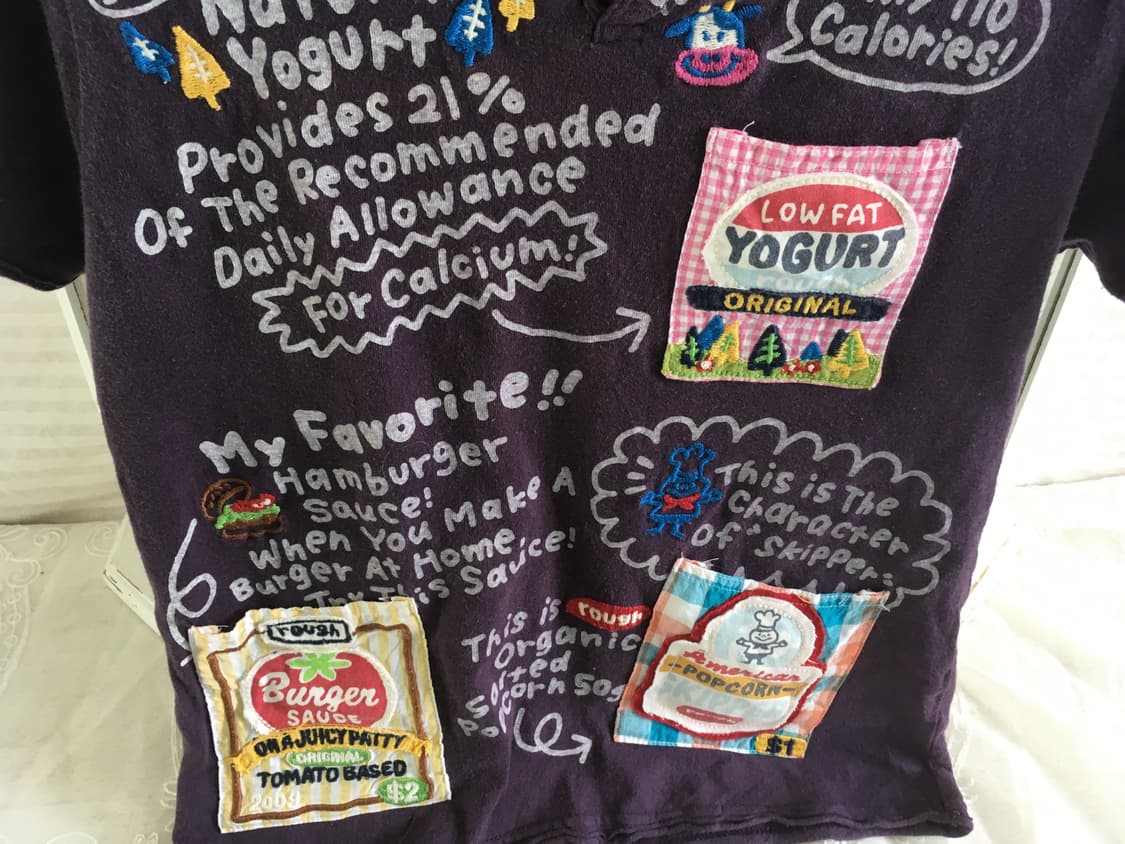 Yogurt
Provides 21%
Of The Recommended
Daily Allowance
For Calcium!
110
Calories!
LOW FAT
YOGURT
ORIGINAL
My Favorite!!
Hamburger
Sauce!
When You Make A
Burger At Home,
This Sauce!
This is The
Character
Of "Skipper"
rough
Burger
SAUCE
ON A JUICY PATTY
ORIGINAL
TOMATO BASED
2009
$2
This is rough
Organic
Salted
Popcorn 50g
American
-POPCORN-
$1